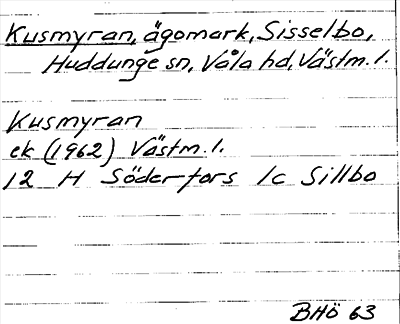 Kusmyran, ägomark, Sisselbo,
Huddunge sn, Våla hd, Västm. l.
Kusmyran
ek (1962) Västm. l.
12 H Söderfors 1c Sillbo
BHÖ 63